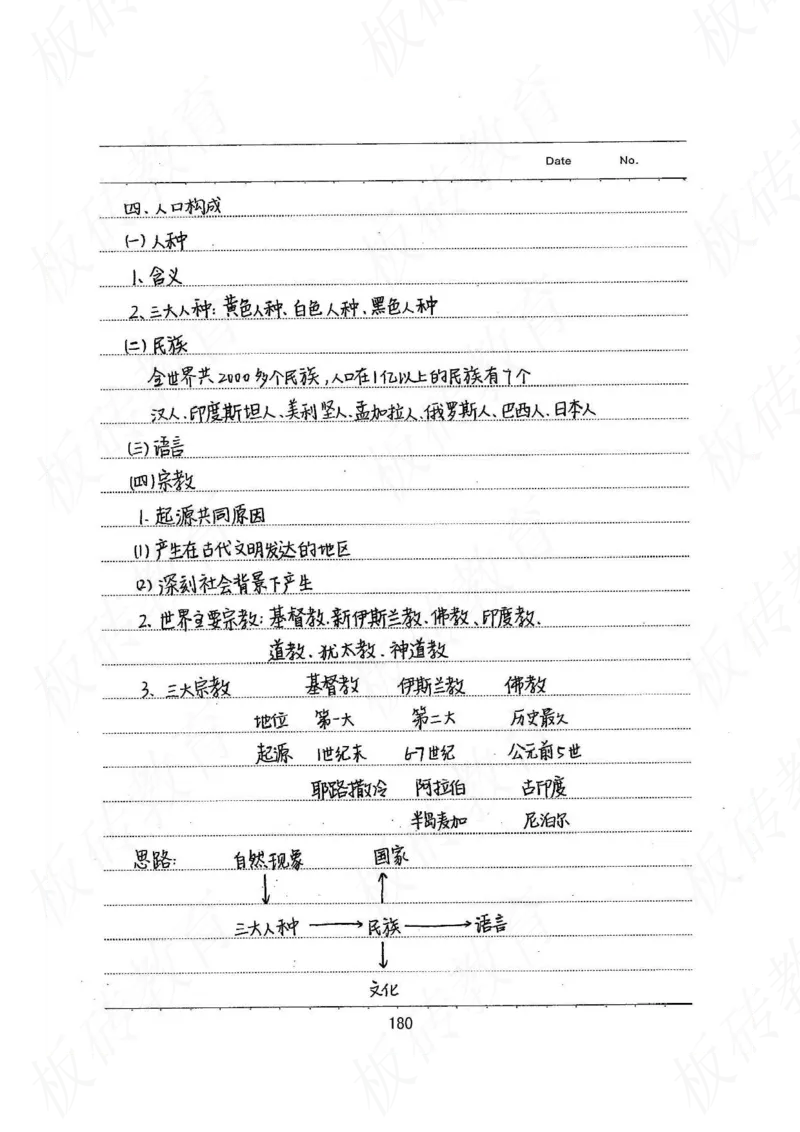 Date No.
四、人口构成
(一)人种
1、含义
2、三大人种：黄色人种、白色人种、黑色人种
(二)民族
全世界共2000多个民族，人口在1亿以上的民族有7个
汉人、印度斯坦人、美利坚人、孟加拉人、俄罗斯人、巴西人、日本人
(三)语言
(四)宗教
1. 起源共同原因
(1)产生在古代文明发达的地区
(2)深刻社会背景下产生
2、世界主要宗教：基督教、新伊斯兰教、佛教、印度教、
道教、犹太教、神道教
3、三大宗教 基督教 伊斯兰教 佛教
地位 第一大 第二大 历史最久
起源 1世纪末 6-7世纪 公元前5世
耶路撒冷 阿拉伯 古印度
半岛麦加 尼泊尔
思路： 自然现象 国家
三大人种 → 民族 → 语言
文化
180
板砖教育